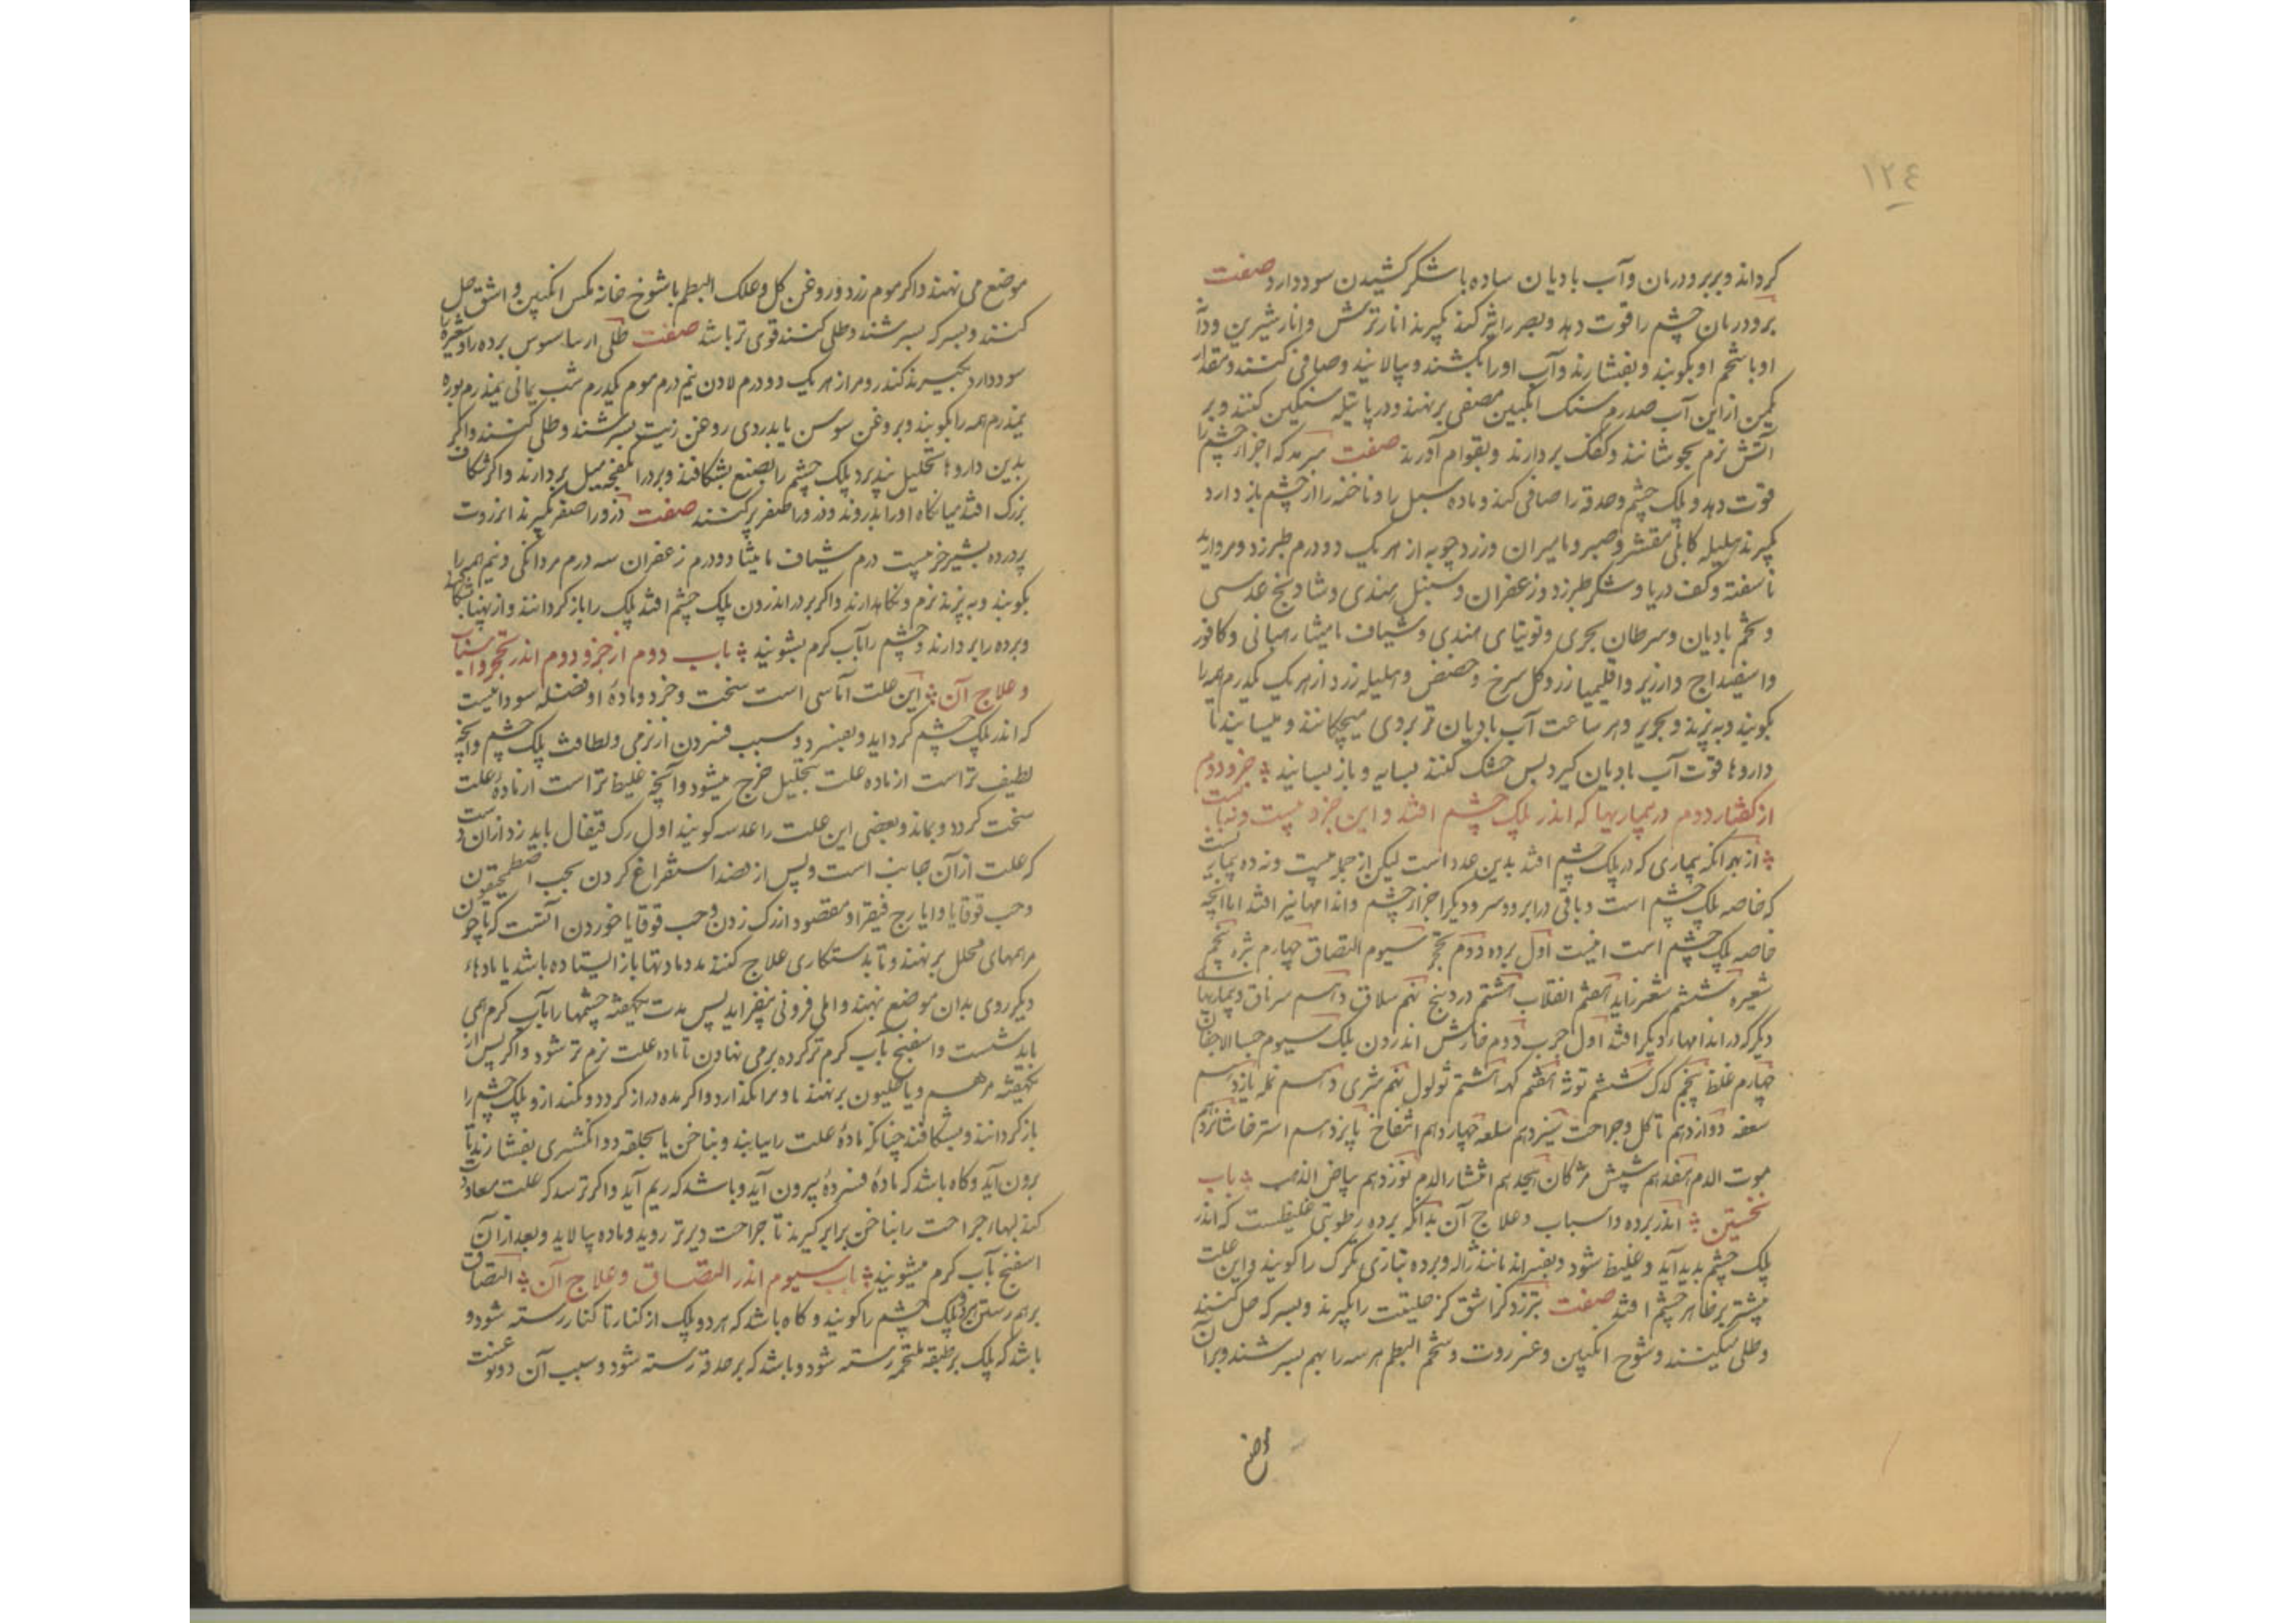 ١٢٤
کرداند و بربرودرمان و آب بادیان ساده با شکر کشیدن سود دارد صفت
برودرمان چشم را قوت دهد و بصر را تیز کند بکیرند انار ترش و انار شیرین و دانه
او با شحم او بکوبند و بفشارند و آب او را بکشند و پالایند و صافی کنند و مقدار
یکمن از این آب صد درم سنک انکبین مصفی برنهند و در پاتیله سنکین کنند و بر
آتش نرم بجوشانند و کفک بردارند و بقوام آورند صفت سرمه که اجزاء چشم را
قوت دهد و پلک چشم و حدقه را صافی کند و ماده سبل را و ناخنه را از چشم باز دارد
بکیرند هلیله کابلی مقشر و صبر و مامیران و زرد چوبه از هر یک دو درم طبرزد و مروارید
ناسفته و کف دریا و شکر طبرزد و زعفران و سنبل هندی و شادنج عدسی
و تخم بادیان و سرطان بحری و توتیای هندی و شیاف مامیثا رهبانی و کافور
و اسفیداج و ارزیز و اقلیمیا زر و کل سرخ و حضض و هلیله زرد از هر یک یکدرم همه را
بکوبند و به پزند و بحریر و هر ساعت آب بادیان تر بروی میچکانند و میسایند تا
داروها قوت آب بادیان کیرد پس خشک کنند بسایه و باز بسایند جزو دوم
از کفتار دوم در بیماریها که اندر پلک چشم افتد و این جزو بیست و نه باب است
از بهر آنکه بیماری که در پلک چشم افتد بدین عدد است لیکن از جمله بیست و نه ده بیماریست
که خاصه پلک چشم است و باقی در ابرو و سر و دیکر اجزاء چشم و اندامها نیز افتد اما آنچه
خاصه پلک چشم است اینست اول برده دوم تحجر سیوم التصاق چهارم شتره پنجم
شعیره ششم شعر زاید هفتم انقلاب هشتم وردینج نهم سلاق دهم سرناق و بیماریهای
دیکر که در اندامهاء دیکر افتد اول جرب دوم خارش اندرون پلک سیوم جسا الاجفان
چهارم غلظ پنجم کدک ششم توثه هفتم کهنه هشتم ثولول نهم شری دهم نمله یازدهم
سعفه دوازدهم تآکل و جراحت سیزدهم سلعه چهاردهم انتفاخ پانزدهم استرخا شانزدهم
موت الدم هفدهم شپش مژکان هیجدهم انتشار الدم نوزدهم بیاض الذهب باب
نخستین اندر برده و اسباب و علاج آن بدانکه برده رطوبتی غلیظست که اندر
پلک چشم پدید آید و غلیظ شود و بفسراند مانند ژاله و برده بتازی تکرک را کویند و این علت
بیشتر بر ظاهر چشم افتد صفت بتزدک اشق کز حلیتیت را بکیرند و بسرکه حل کنند
و طلی میکنند و شوخ انکبین و عنزروت و شحم البطم هر سه را بهم بسرشند و بر آن
موضع
موضع می نهند و اکر موم زرد و روغن کل و علک البطم با شوخ خانه مکس انکبین و اشق حل
کنند و بسرکه بسرشند و طلی کنند قوی تر باشد صفت طلی ارسا سوس برده را و شعیره را
سود دارد بکیرند کندر و مر از هر یک دو درم لادن نیم درم موم یکدرم شب یمانی نیمدرم بوره
نیمدرم همه را بکوبند و بروغن سوسن یا بدردی روغن زیت بسرشند و طلی کنند و اکر
بدین داروها تحلیل نپذیرد پلک چشم را بصنع بشکافند و برد را بمفجه میل بردارند و اکر شکاف
بزرک افتد میانکاه او را بدروند و ذرور اصفر برکنند صفت ذرور اصفر بکیرند انزروت
پرورده بشیر خر بیست درم شیاف مامیثا دو درم زعفران سه درم مر دانکی و نیم همه را
بکوبند و به پزند نرم و نکاهدارند و اکر برد اندرون پلک چشم افتد پلک را باز کردانند و از پهنا بشکافند
و برده را بردارند و چشم را بآب کرم بشویند باب دوم از جزو دوم اندر تحجر و اسباب
و علاج آن این علت آماسی است سخت و خرد و مادهٔ او فضله سوداییست
که اندر پلک چشم کرد آید و بفسرد و سبب فسردن از نرمی و لطافت پلک چشم و آنچه
لطیف تر است از ماده علت بتحلیل خرج میشود و آنچه غلیظ تر است از مادهٔ علت
سخت کردد و بماند و بعضی این علت را عدسه کویند اول رک قیفال باید زد از آن دست
که علت از آن جانب است و پس از فصد استفراغ کردن بحب اصطمخیقون
و حب قوقایا و ایارج فیقرا و مقصود از رک زدن و حب قوقایا خوردن آنست که تا چون
مرهمهای محلل برنهند و تا بدستکاری علاج کنند مدد مادتها باز ایستاده باشد یا مادهاء
دیکر روی بدان موضع نهند و المی فزونی نیفزاید پس مدت یکهفته چشمها را بآب کرم همی
باید شست و اسفنج بآب کرم تر کرده بر می نهادن تا ماده علت نرم تر شود و اکر پس از
یکهفته مرهم دیاخلیون برنهند تا ویرا بکذارد و اکر مده دراز کردد و نکند ازو پلک چشم را
باز کردانند و بشکافند چنانکه مادهٔ علت را بیابند و بناخن یا بحلقه دو انکشتری بفشارند تا
برون آید و کاه باشد که مادهٔ فسردهٔ بیرون آید و باشد که ریم آید و اکر ترسد که علت معاودت
کند لبهاء جراحت را بناخن برابر کیرند تا جراحت دیرتر روید و ماده پالاید و بعد از آن
اسفنج بآب کرم میشویند باب سیوم اندر التصاق و علاج آن التصاق
برهم رستن هر دو پلک چشم را کویند و کاه باشد که هر دو پلک از کنار تا کنار رسته شود و
باشد که پلک بر طبقه ملتحمه رسته شود و باشد که بر حدقه رسته شود و سبب آن دو نوعست